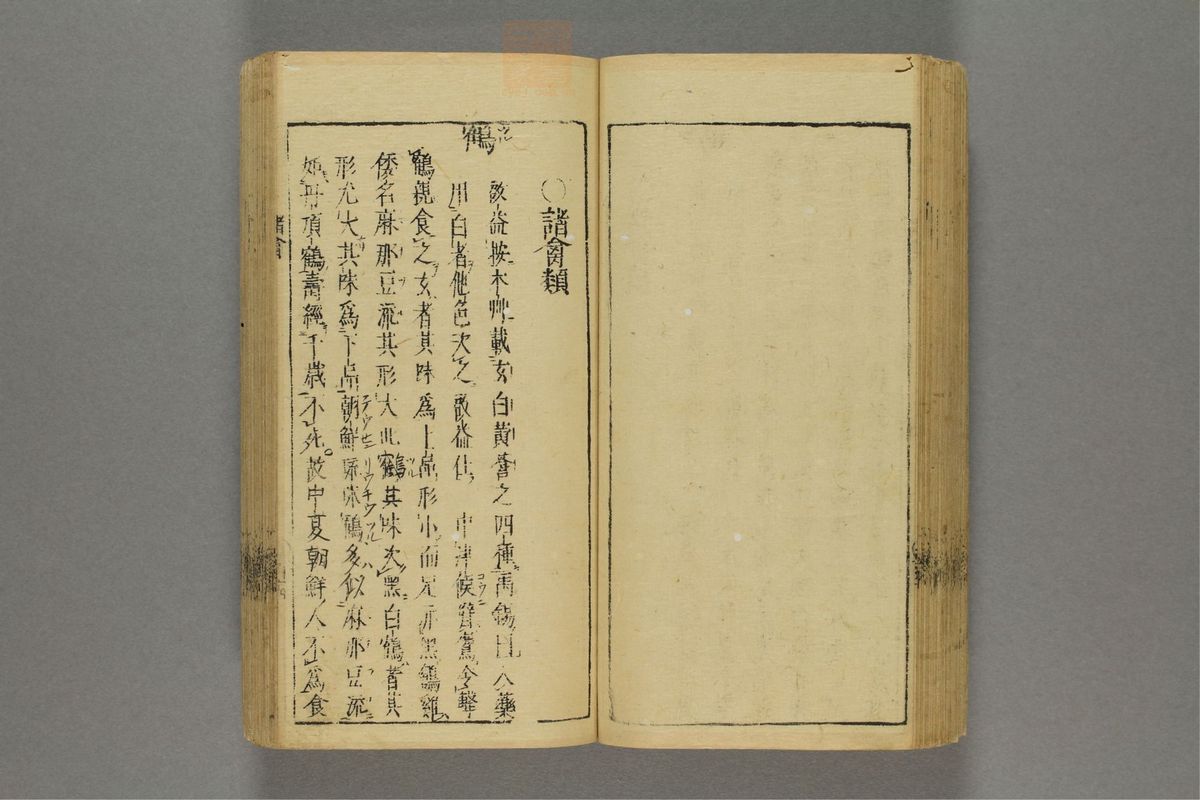 ○諸禽類
鶴 ツル
啟益按本艸載玄白黄蒼之四種禹錫曰入藥
用白者他色次之啟益仕 中津侯 鷹 令撃
鶴親食之玄者其味爲上品形小而足 黒
倭名麻那豆流其形大此鶴其味次黒白鶴者其
形尤大其味爲下品朝鮮 鶴多似麻那豆流
丹頂鶴壽經千歳不死。故中夏朝鮮人不爲食
諸禽